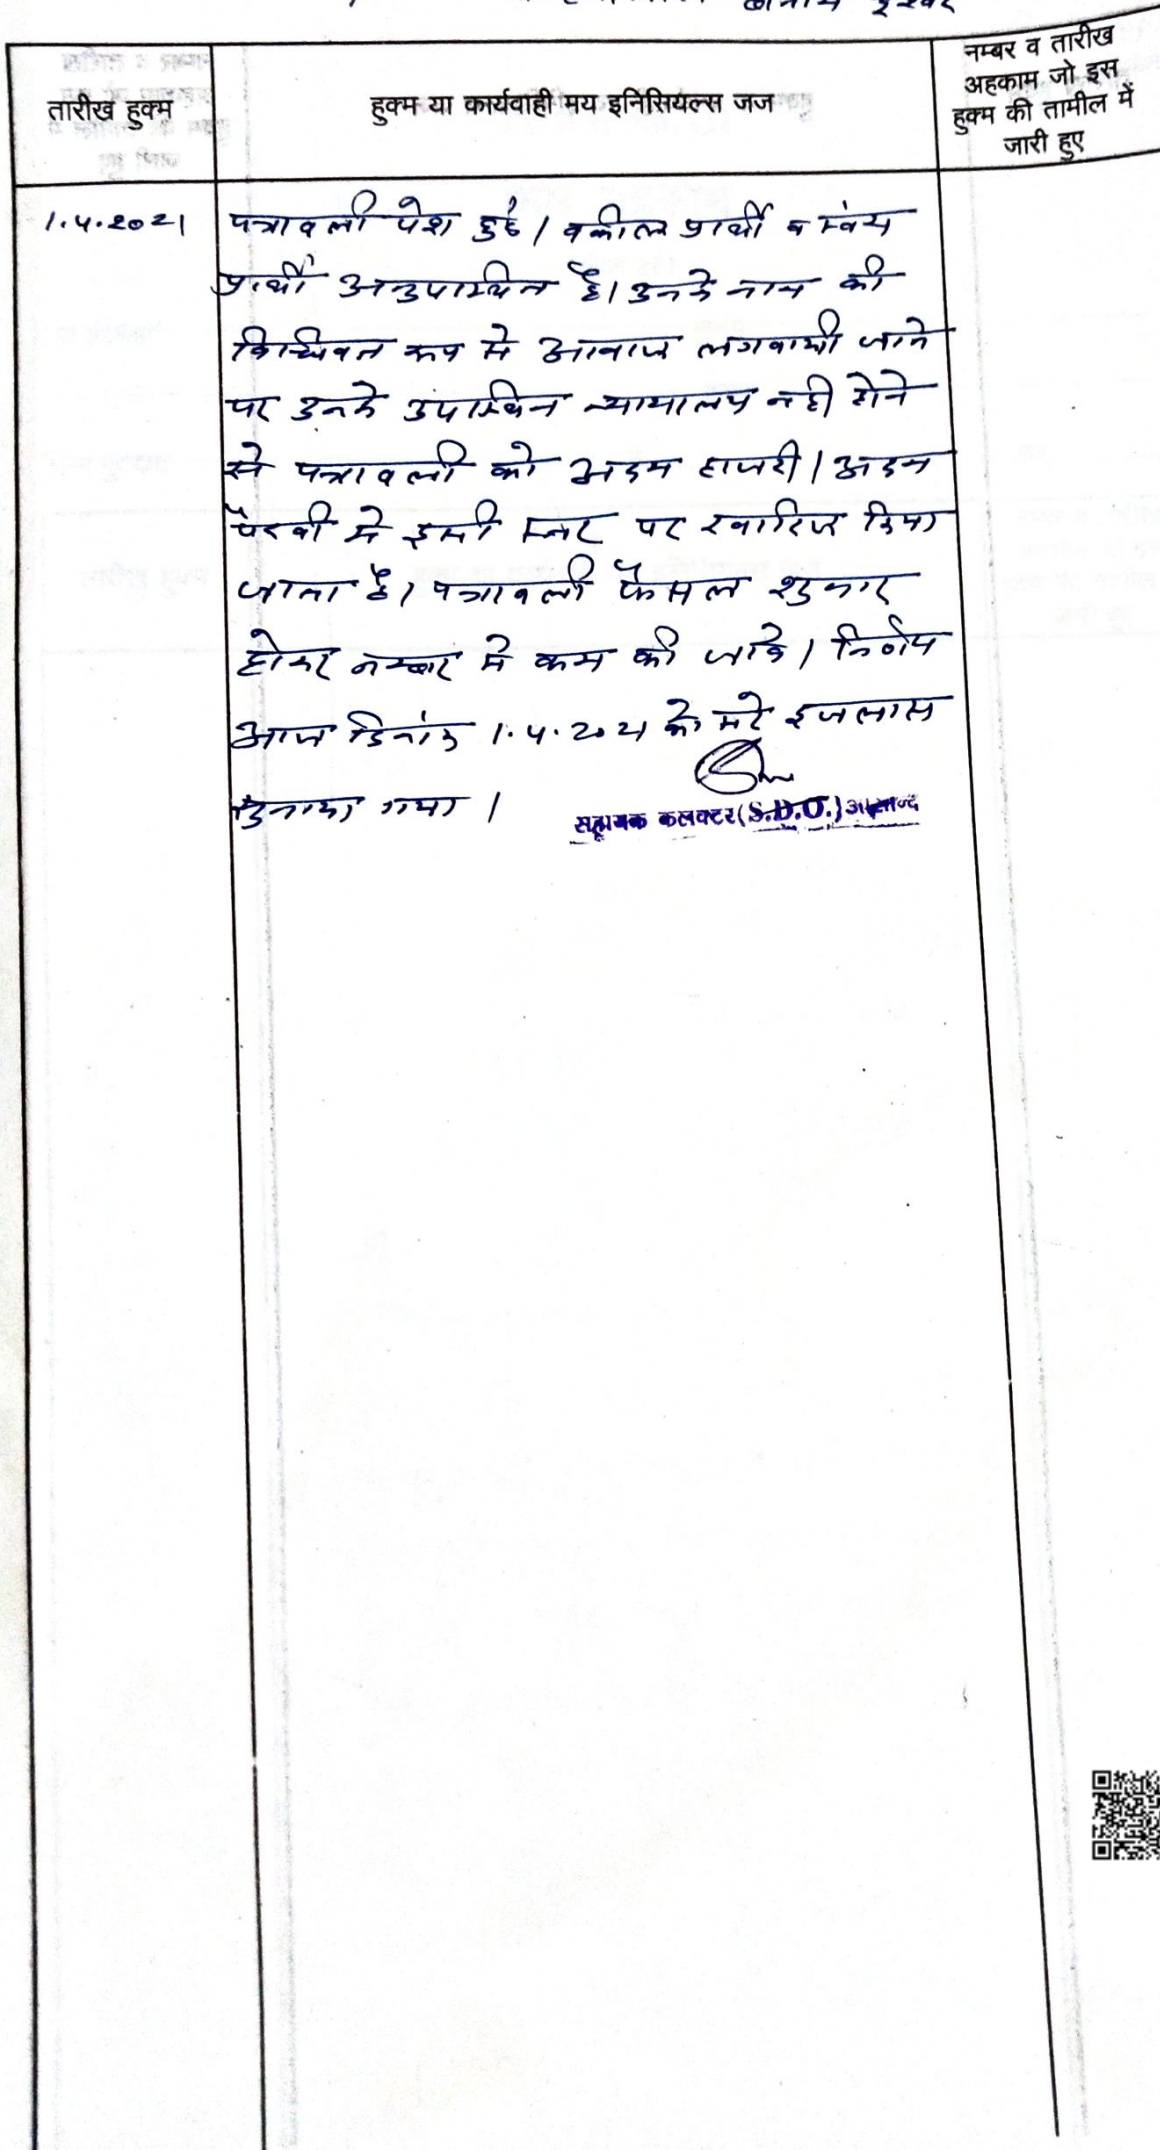 तारीख हुक्म
हुक्म या कार्यवाही मय इनिसियल्स जज
नम्बर व तारीख
अहकाम जो इस
हुक्म की तामील में
जारी हुए
1.4.2021
पत्रावली पेश हुई। वकील प्रार्थी व स्वंय
प्रार्थी अनुपास्थित है। उनके नाम की
विधिवत रूप से आवाज लगवायी जाने
पर उनके उपास्थित न्यायालय नही होने
से पत्रावली को अदम हाजरी / अदम
पैरवी मे इसी स्तर पर खारिज किया
जाता है। पत्रावली फैसल शुमार
होकर नम्बर से कम की जावे। निर्णय
आज दिनांक 1.4.2021 को सरे इजलास
सुनाया गया।
सहायक कलक्टर (S.D.O.)